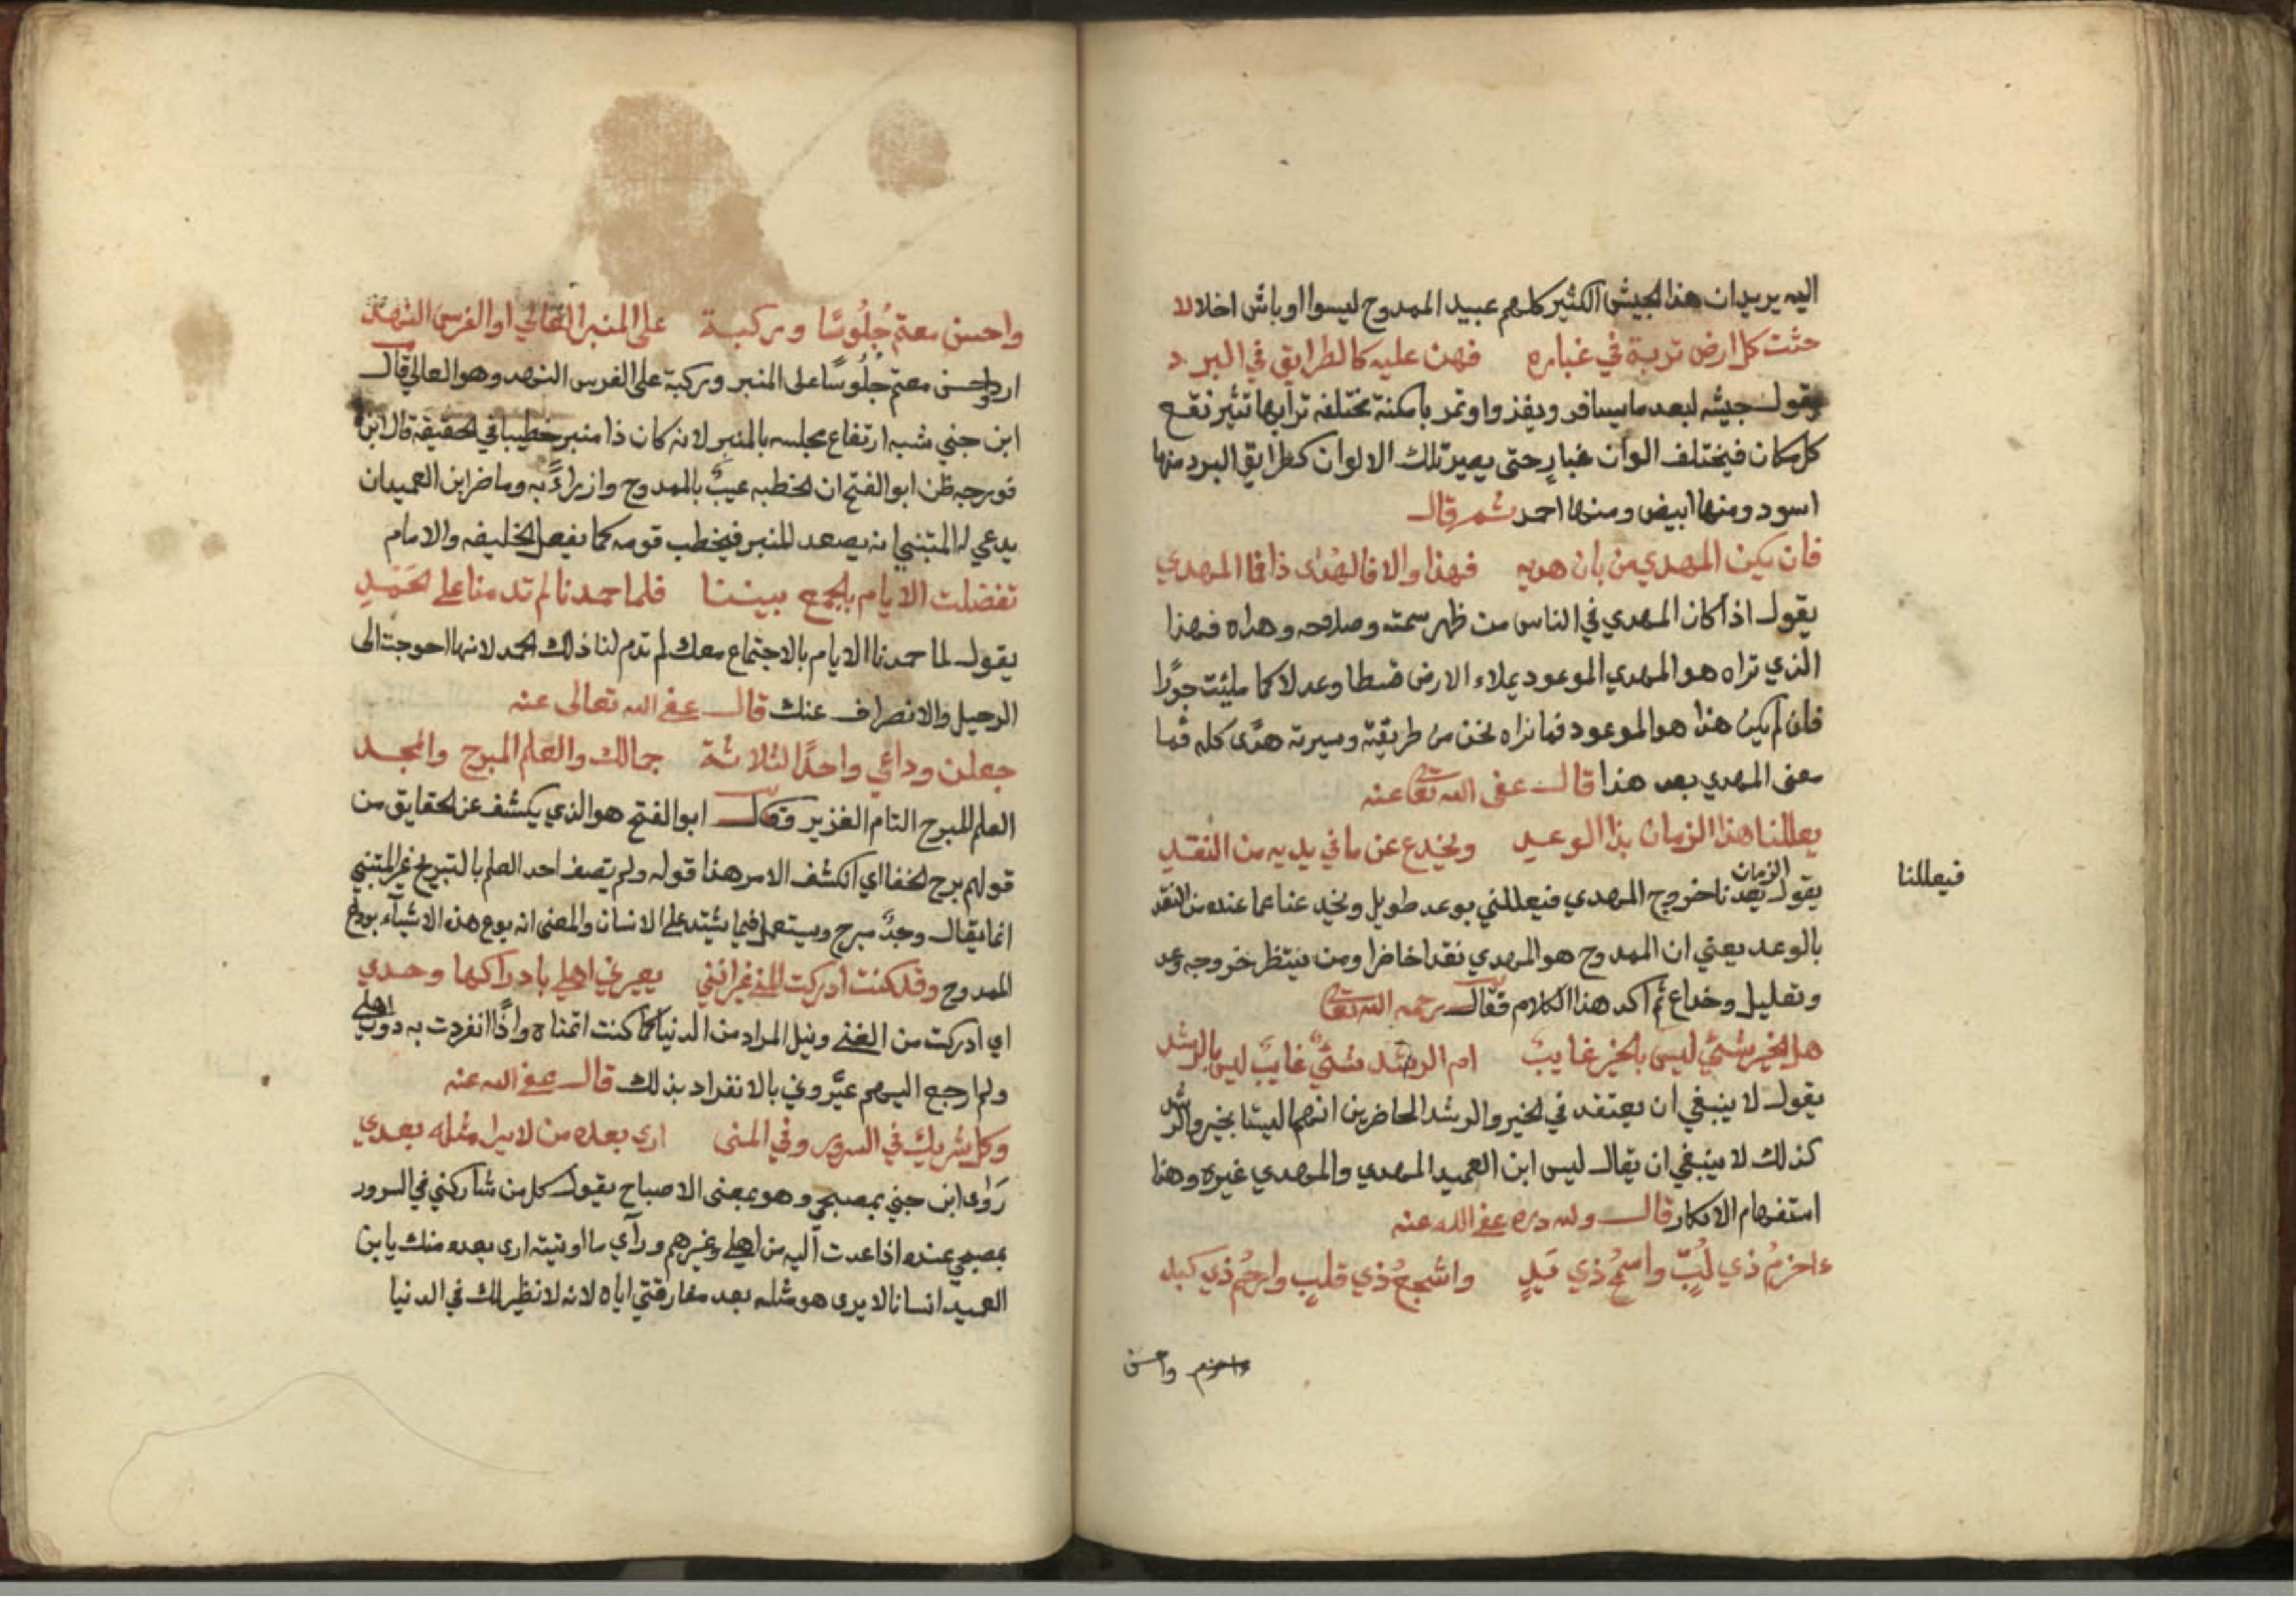 اليه يريد ان هذا الجيش الكثير كلهم عبيد الممدوح ليسوا اوباش اخلالا
حثت كل ارض تربة في غباره فهن عليه كالطرايق في البرد
يقول جيشه لبعد ما يسافر ويغزوا وتمر بامكنة مختلفه ترابها تثير نقع
كل مكان فيختلف الوان غبار حتى يصير تلك الالوان كطرايق البرد منها
اسود ومنها ابيض ومنها احمر ثم قال
فان يكن المهدي من بان هديه فهذا والا فالهدى ذا فما المهدي
يقول اذا كان المهدي في الناس من ظهر سمته وصلاحه وهداه فهذا
الذي تراه هو المهدي الموعود يملاء الارض قسطا وعدلا كما مليئت جورًا
فان لم يكن هذا هو الموعود فما نراه نحن من طريقته وسيرته هدًى كله فما
معنى المهدي بعد هذا قال عفى الله تعا عنه
يعللنا هذا الزمان بذا الوعد ويخدع عن ما في يديه من النقد
فيعللنا
الزمان
يقول يعدنا خروج المهدي فيعللني بوعد طويل ويخدعنا عما عنده من النقد
بالوعد يعني ان الممدوح هو المهدي نقدا حاضرا ومن ينتظر خروجه وعد
وتعليل وخداع ثم اكد هذا الكلام فقال رحمه الله تعا
هل الخير شئ ليس بالخير غايبٌ ام الرشد شئٌ غايبٌ ليس بالرشد
يقول لا ينبغي ان يعتقد في الخير والرشد الحاضرين انهما ليستا بخير والرشد
كذلك لا ينبغي ان يقال ليس ابن العميد المهدي والمهدي غيره وهذا
استفهام الانكار قال ولله دره عفى الله عنه
ءاحزمُ ذي لُبٍّ واسمحُ ذي يَدٍ واشجعُ ذي قلبٍ وارحمُ ذي كبد
ءاحزم واحسن
واحسن معتم جُلُوسًا وركبة على المنبر العالي او الفرس النهد
اراد واحسن معتم جُلُوسًا على المنبر وركبة على الفرس النهد وهو العالي قال
ابن جني شبه ارتفاع مجلسه بالمنبر لا نه كان ذا منبر خطيبا في الحقيقة قال ابن
فورجه ظن ابو الفتح ان الخطبه عيبٌ بالممدوح وازراءً به وما ضر ابن العميد ان
يدعي له المتنبي انه يصعد المنبر فيخطب قومه كما يفعل الخليفه والامام
تفضلت الايام بالجمع بيننا فلما حمدنا لم تدمنا على الحَمْدِ
يقول لما حمدنا الايام بالاجتماع معك لم تدم لنا ذلك الحمد لانها احوجت الى
الرحيل والانصراف عنك قال عفى الله تعالى عنه
جعلن وداعي واحدًا لثلاثة جمالك والعلم المبرح والمجد
العلم المبرح التام الغزير فقال ابو الفتح هو الذي يكشف عن الحقايق من
قولهم برح الخفا اي انكشف الامر هذا قوله ولم تصف احد العلم بالتبريح غير المتنبي
انما يقال وجدٌ مبرح ويستعمل فيما يشتد على الانسان والمعنى انه يودع هذه الاشياء بوداع
الممدوح وقد كنت ادركت المنى غير انني يعيرني اهلي بادراكها وحدي
اي ادركت من الغنى ونيل المراد من الدنيا كما كنت اتمناه واذًا انفردت به دون اهلي
ولم ارجع اليهم عيَّروني بالانفراد بذلك قال عفى الله عنه
وكل شريك في السرور وفي المنى ارى بعده من لا يرا مثله بعدي
رَوٰى ابن جني بمصبحي وهو بمعنى الاصباح يقول كل من شاركني في السرور
بمصبحي عنده اذا عدت اليه من اهلي وغيرهم وراي ما اوتيته ارى بعده منك يا بن
العميد انسانا لا يرى هو مثله بعد مفارقتي اياه لانه لا نظير لك في الدنيا